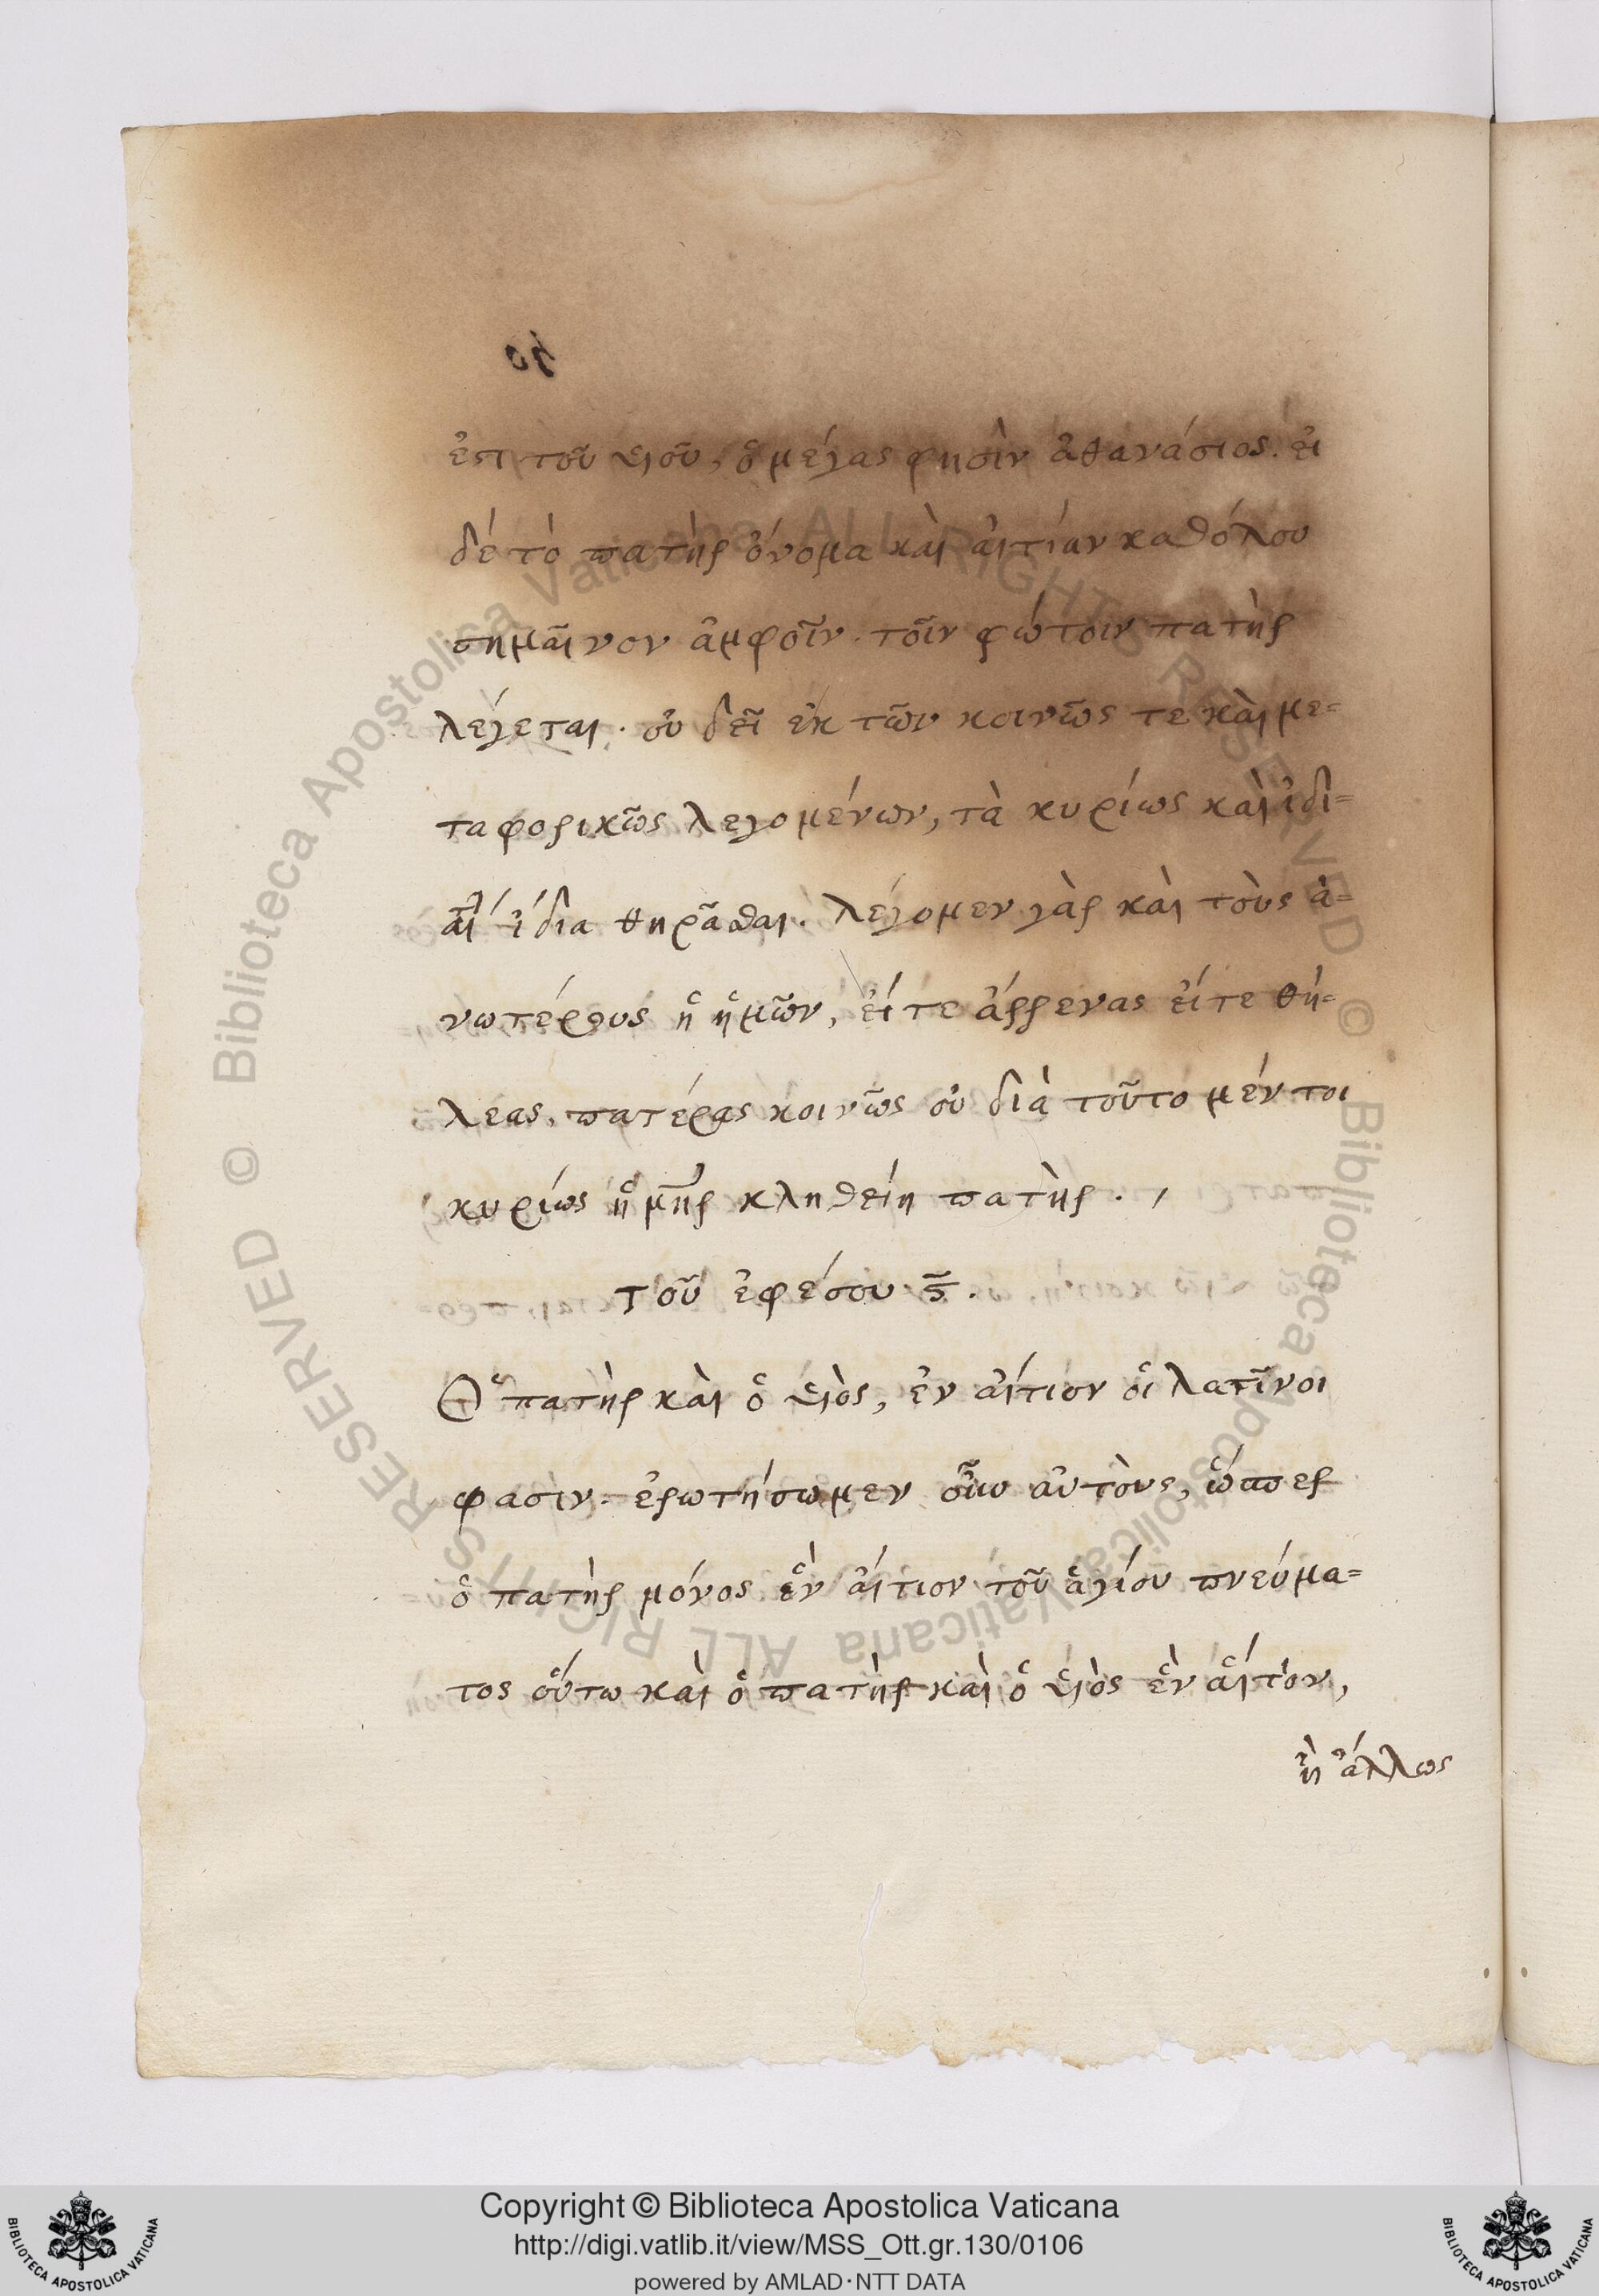 ἐστι τοῦ υἱοῦ, ὁ μέγας φησὶν ἀθανάσιος. εἰ
δέ τὸ πατὴρ ὄνομα καὶ αἰτίαν καθόλου
σημαῖνον ἀμφοῖν. τοῖν φώτοιν πατὴρ
λέγεται. οὐ δεῖ ἐκ τῶν κοινῶς τε καὶ με=
ταφορικῶς λεγομένων, τὰ κυρίως καὶ ἰδι=
ίδια θηρᾶσθαι. λέγομεν γὰρ καὶ τοὺς ἀ=
νωτέρους ἢ ἡμῶν, εἴτε ἄρρενας εἴτε θή=
λεας, πατέρας κοινῶς οὐ διὰ τοῦτο μέν τοι
κυρίως ἡ μηρ κληθείη πατὴρ. ,
τοῦ ἐφέσου ς.
Ὁ πατὴρ καὶ ὁ υἱὸς, ἐν αἴτιον οἱ λατῖνοι
φασιν. ἐρωτήσωμεν οὖν αὐτοὺς, ὥσπερ
ὁ πατὴρ μόνος ἓν αἴτιον τοῦ ἁγίου πνεύμα=
τος οὕτω καὶ ὁ πατὴρ καὶ ὁ υἱὸς ἓν αἵτιον,
ἢ ἄλλως
Copyright © Biblioteca Apostolica Vaticana
http://digi.vatlib.it/view/MSS_Ott.gr.130/0106
powered by AMLAD·NTT DATA
© Biblioteca Apostolica Vaticana ALL RIGHTS RESERVED
© Biblioteca Apostolica Vaticana ALL RIGHTS RESERVED
BIBLIOTECA APOSTOLICA VATICANA
BIBLIOTECA APOSTOLICA VATICANA